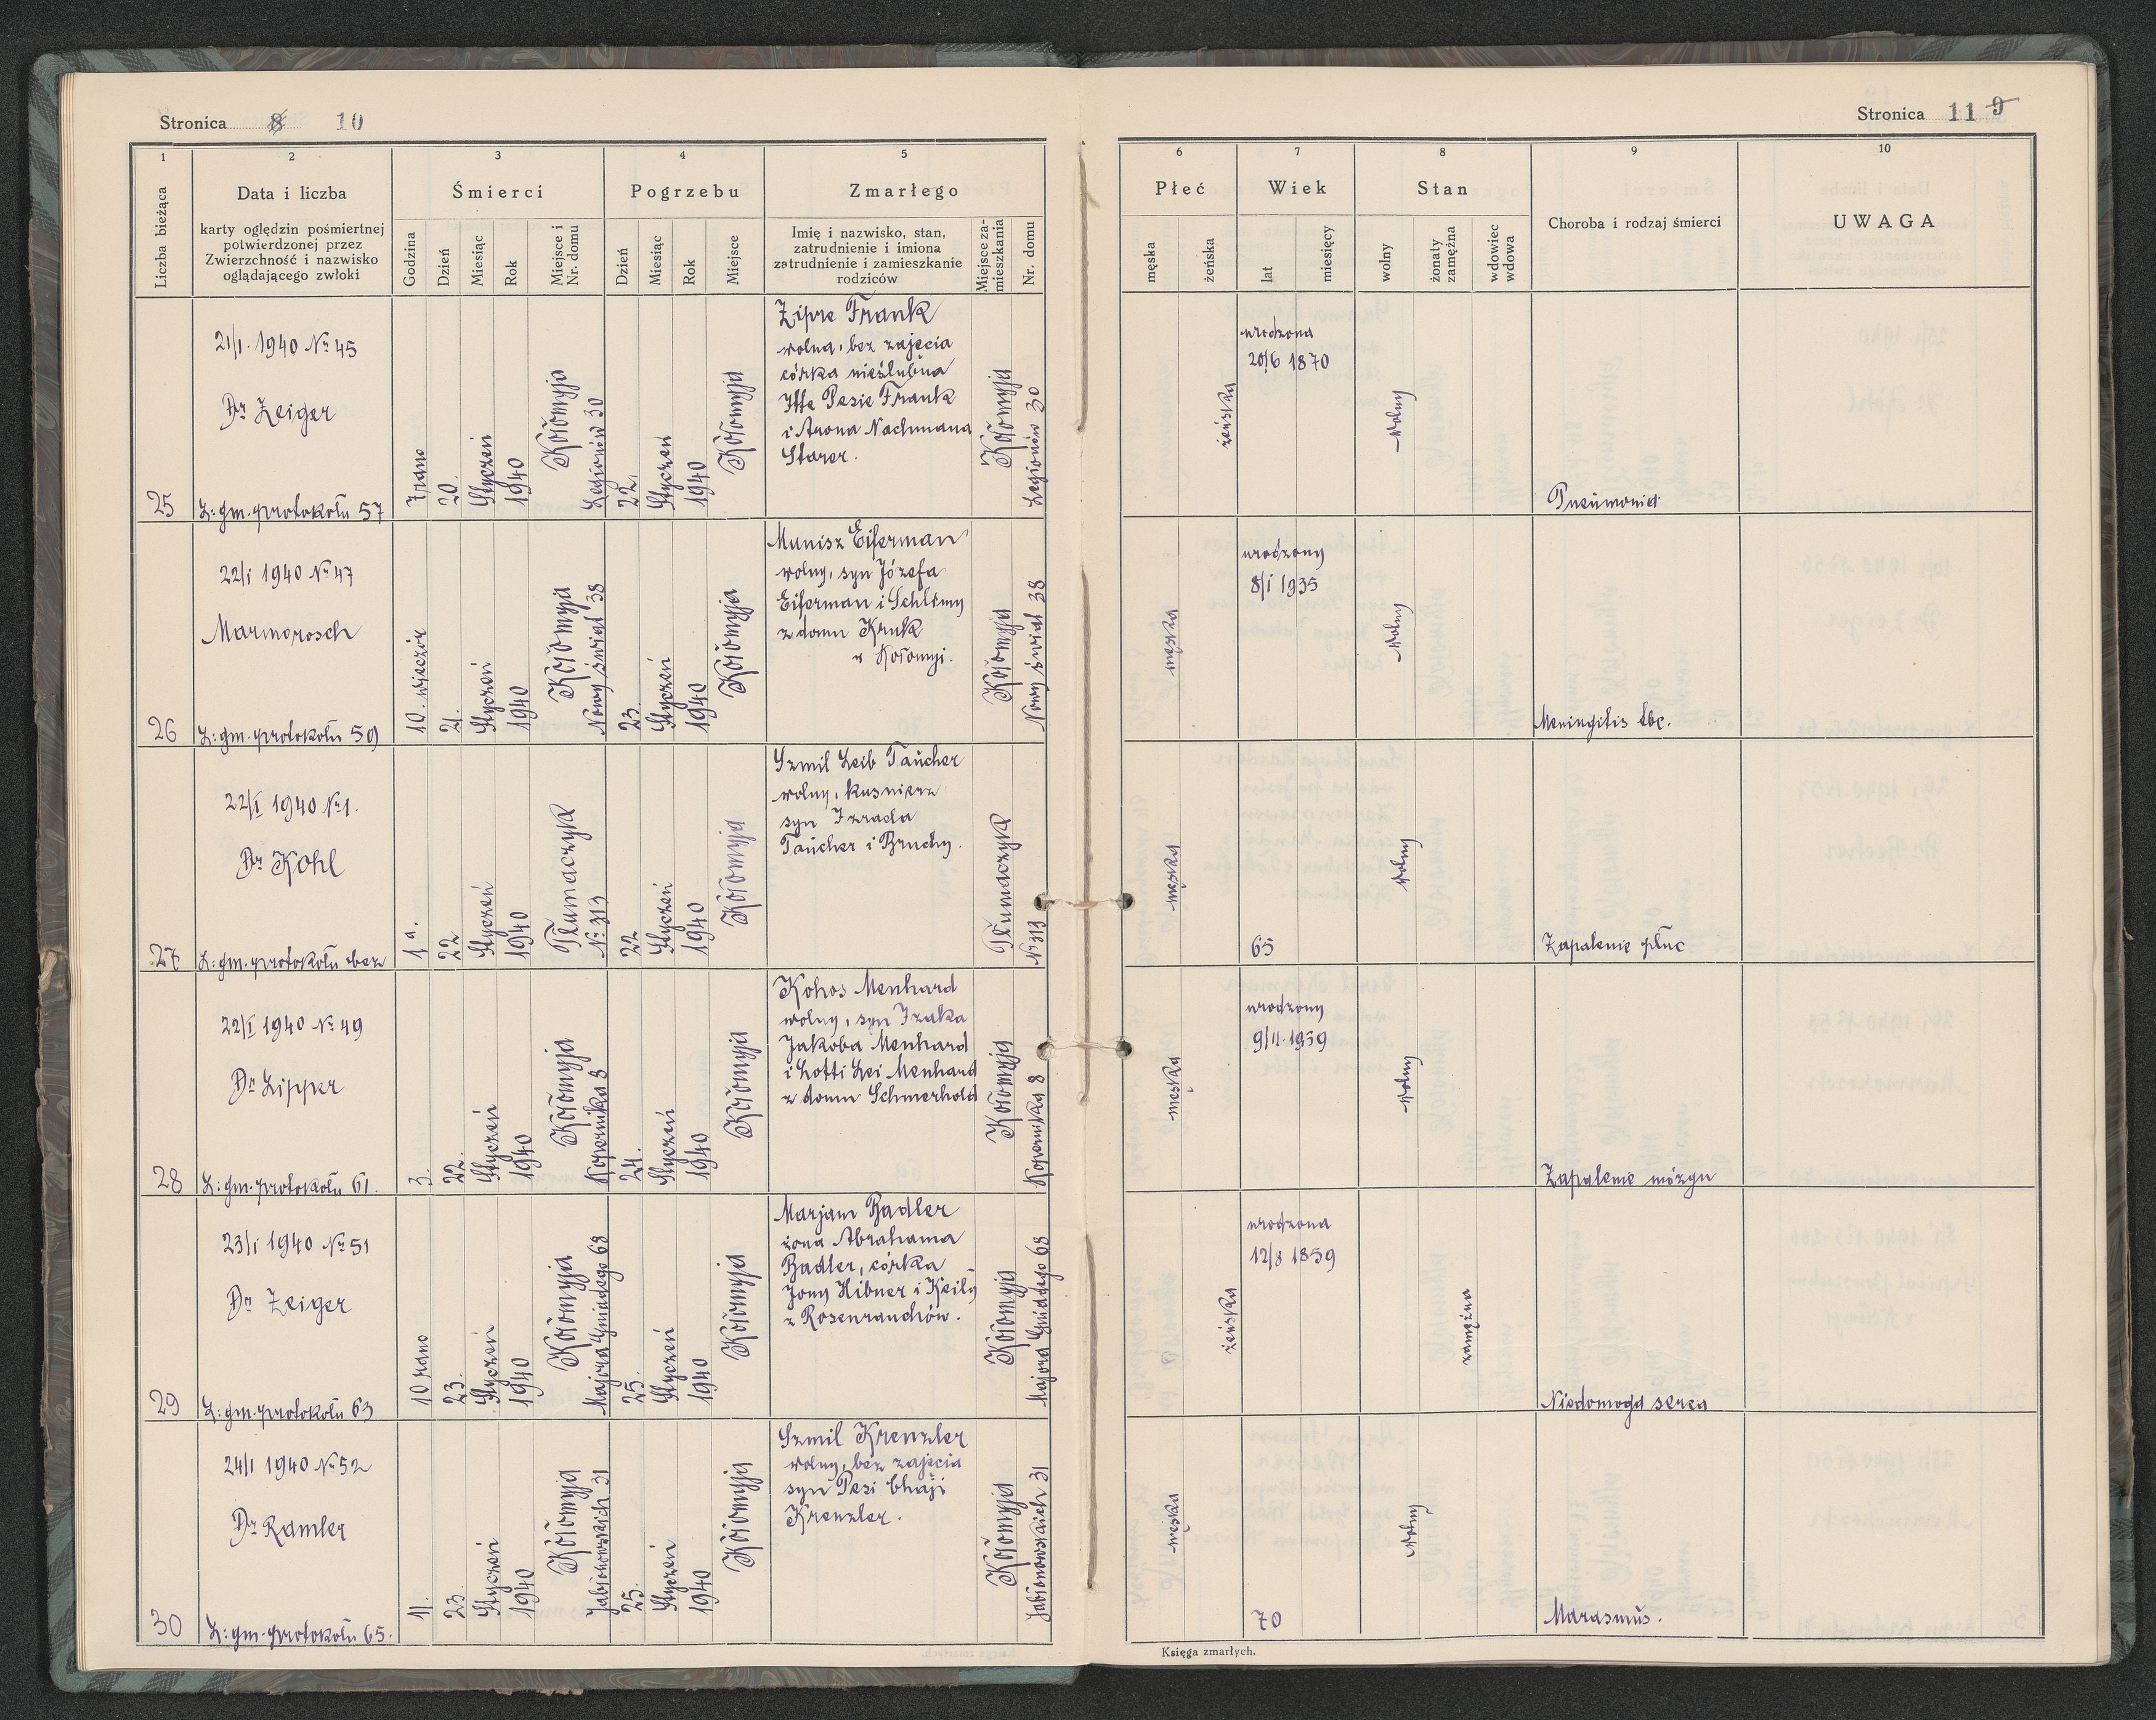 Stronica 8 10
1
2
3
4
5
Liczba bieżąca
Data i liczba
karty oględzin pośmiertnej
potwierdzonej przez
Zwierzchność i nazwisko
oglądającego zwłoki
Śmierci
Godzina
Dzień
Miesiąc
Rok
Miejsce i
Nr. domu
Pogrzebu
Dzień
Miesiąc
Rok
Miejsce
Zmarłego
Imię i nazwisko, stan,
zatrudnienie i imiona
zatrudnienie i zamieszkanie
rodziców
Miejsce za-
mieszkania
Nr. domu
25
21/I. 1940 № 45
Dr Zeiger
L: gm. protokołu 57
7 rano
20.
Styczeń
1940
Kołomyja
Legionów 30
22.
Styczeń
1940
Kołomyja
Zipre Frank
wolna, bez zajęcia
córka nieślubna
Itte Pesie Frank
i Arona Nachmana
Starer.
Kołomyja
Legionów 30
26
22/I 1940 № 47
Marmorosch
L: gm. protokołu 59
10. wieczór
21.
Styczeń
1940
Kołomyja
Nowy świat 38
23.
Styczeń
1940
Kołomyja
Munisz Eiferman
wolny, syn Józefa
Eiferman i Schlimy
z domu Kruk
w Kołomyi.
Kołomyja
Nowy świat 38
27
22/I 1940 № 1.
Dr Kohl
L: gm. protokołu bez
1 a.
22
Styczeń
1940
Tłumaczyk
№ 313
22
Styczeń
1940
Kołomyja
Szmil Leib Taucher
wolny, kusnierz
syn Izraela
Taucher i Bruchy.
Tłumaczyk
№ 313
28
22/I 1940 № 49
Dr Lipper
L: gm. protokołu 61.
3.
22.
Styczeń
1940
Kołomyja
Kopernika 8
24.
Styczeń
1940
Kołomyja
Kohos Menhard
wolny, syn Izaka
Jakóba Menhard
i Lotti Lei Menhard
z domu Schmerhold
Kołomyja
Kopernika 8
29
23/I 1940 № 51
Dr Zeiger
L: gm. protokołu 63
10 rano
23.
Styczeń
1940
Kołomyja
Majora Gniadego 68
25.
Styczeń
1940
Kołomyja
Marjam Badler
żona Abrahama
Badler, córka
Jony Hibner i Keily
z Rosenrauchów.
Kołomyja
Majora Gniadego 68
30
24/I 1940 № 52
Dr Ramler
L: gm. protokołu 65.
11.
23.
Styczeń
1940
Kołomyja
Jabłonowskich 31
25.
Styczeń
1940
Kołomyja
Szmil Krenzler
wolny, bez zajęcia
syn Pesi Chaji
Krenzler.
Kołomyja
Jabłonowskich 31
Stronica 11 9
6
7
8
9
10
Płeć
męska
żeńska
Wiek
lat
miesięcy
Stan
wolny
żonaty
zamężna
wdowiec
wdowa
Choroba i rodzaj śmierci
UWAGA
żeńska
urodzona
20/6 1870
wolny
Pneumonia
męska
urodzony
8/I 1935
wolny
Meningitis tbc.
męska
65
wolny
Zapalenie płuc
męska
urodzony
9/11. 1939
wolny
Zapalenie mózgu
żeńska
urodzona
12/8 1859
zamężna
Niedomoga serca
męska
70
wolny
Marasmus.
Księga zmarłych.